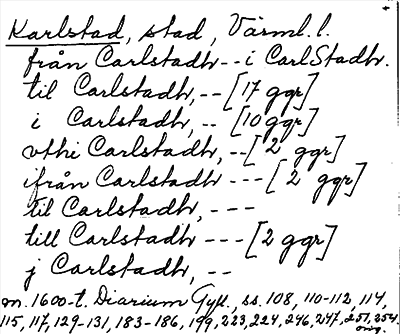 Karlstad, stad, Värml. l.
från Carlstadh -- i CarlStadh.
til Carlstadh, -- [17 ggr]
i Carlstadh, -- [10 ggr]
vthi Carlstadh, -- [2 ggr]
ifrån Carlstadh --- [2 ggr]
til Carlstadh, ---
till Carlstadh --- [2 ggr]
j Carlstadh, --
m. 1600-t. Diarium Gyll., ss. 108, 110-112, 114,
115, 117, 129-131, 183-186, 199, 223, 224, 246, 247, 251, 254
orig.